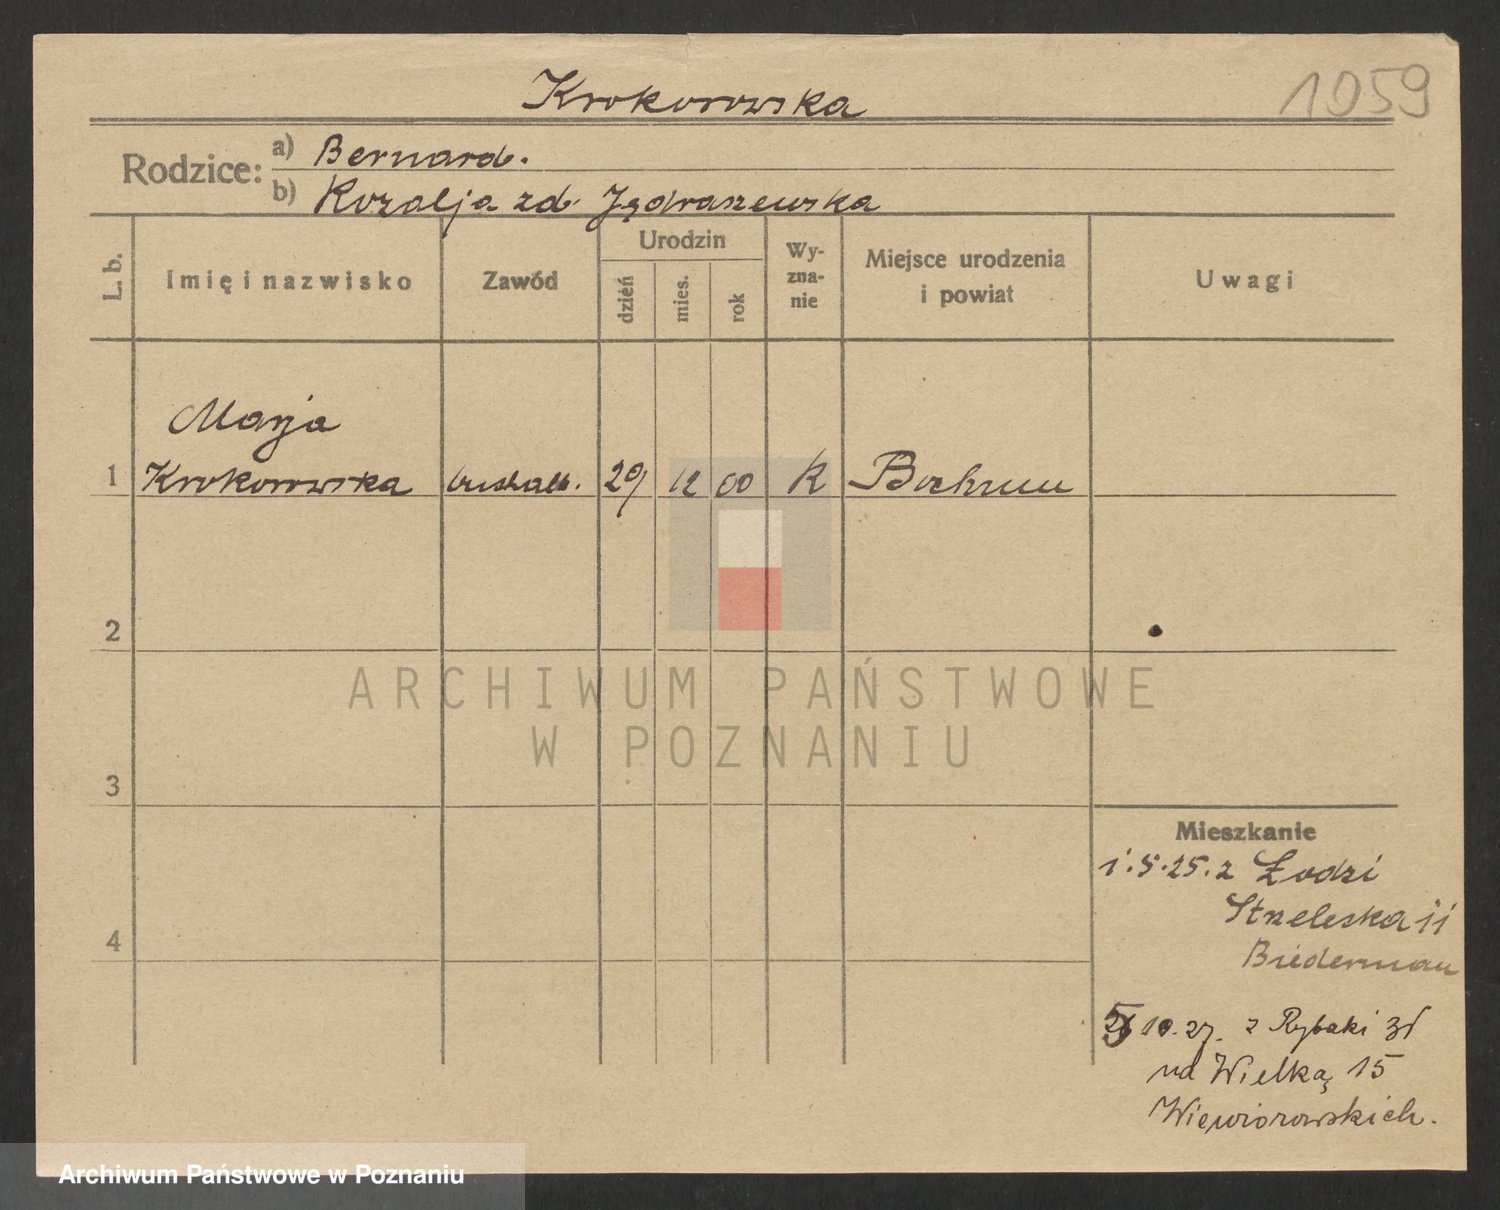 Krokorowska
1059
Rodzice: a) Bernard.
b) Rozalja zd. Jędraszewska
L. b.
Imię i nazwisko
Zawód
Urodzin
dzień
mies.
rok
Wy-
zna-
nie
Miejsce urodzenia
i powiat
Uwagi
Marja
1 Krokorowska buchalt. 29 12 00 R Bochum
2
3
4
ARCHIWUM PAŃSTWOWE
W POZNANIU
Mieszkanie
1.5.25. z Łodzi
Strzelecka 11
Biederman
10.27. z Rybaki
na Wielką 15
Wiewiórowskich.
Archiwum Państwowe w Poznaniu